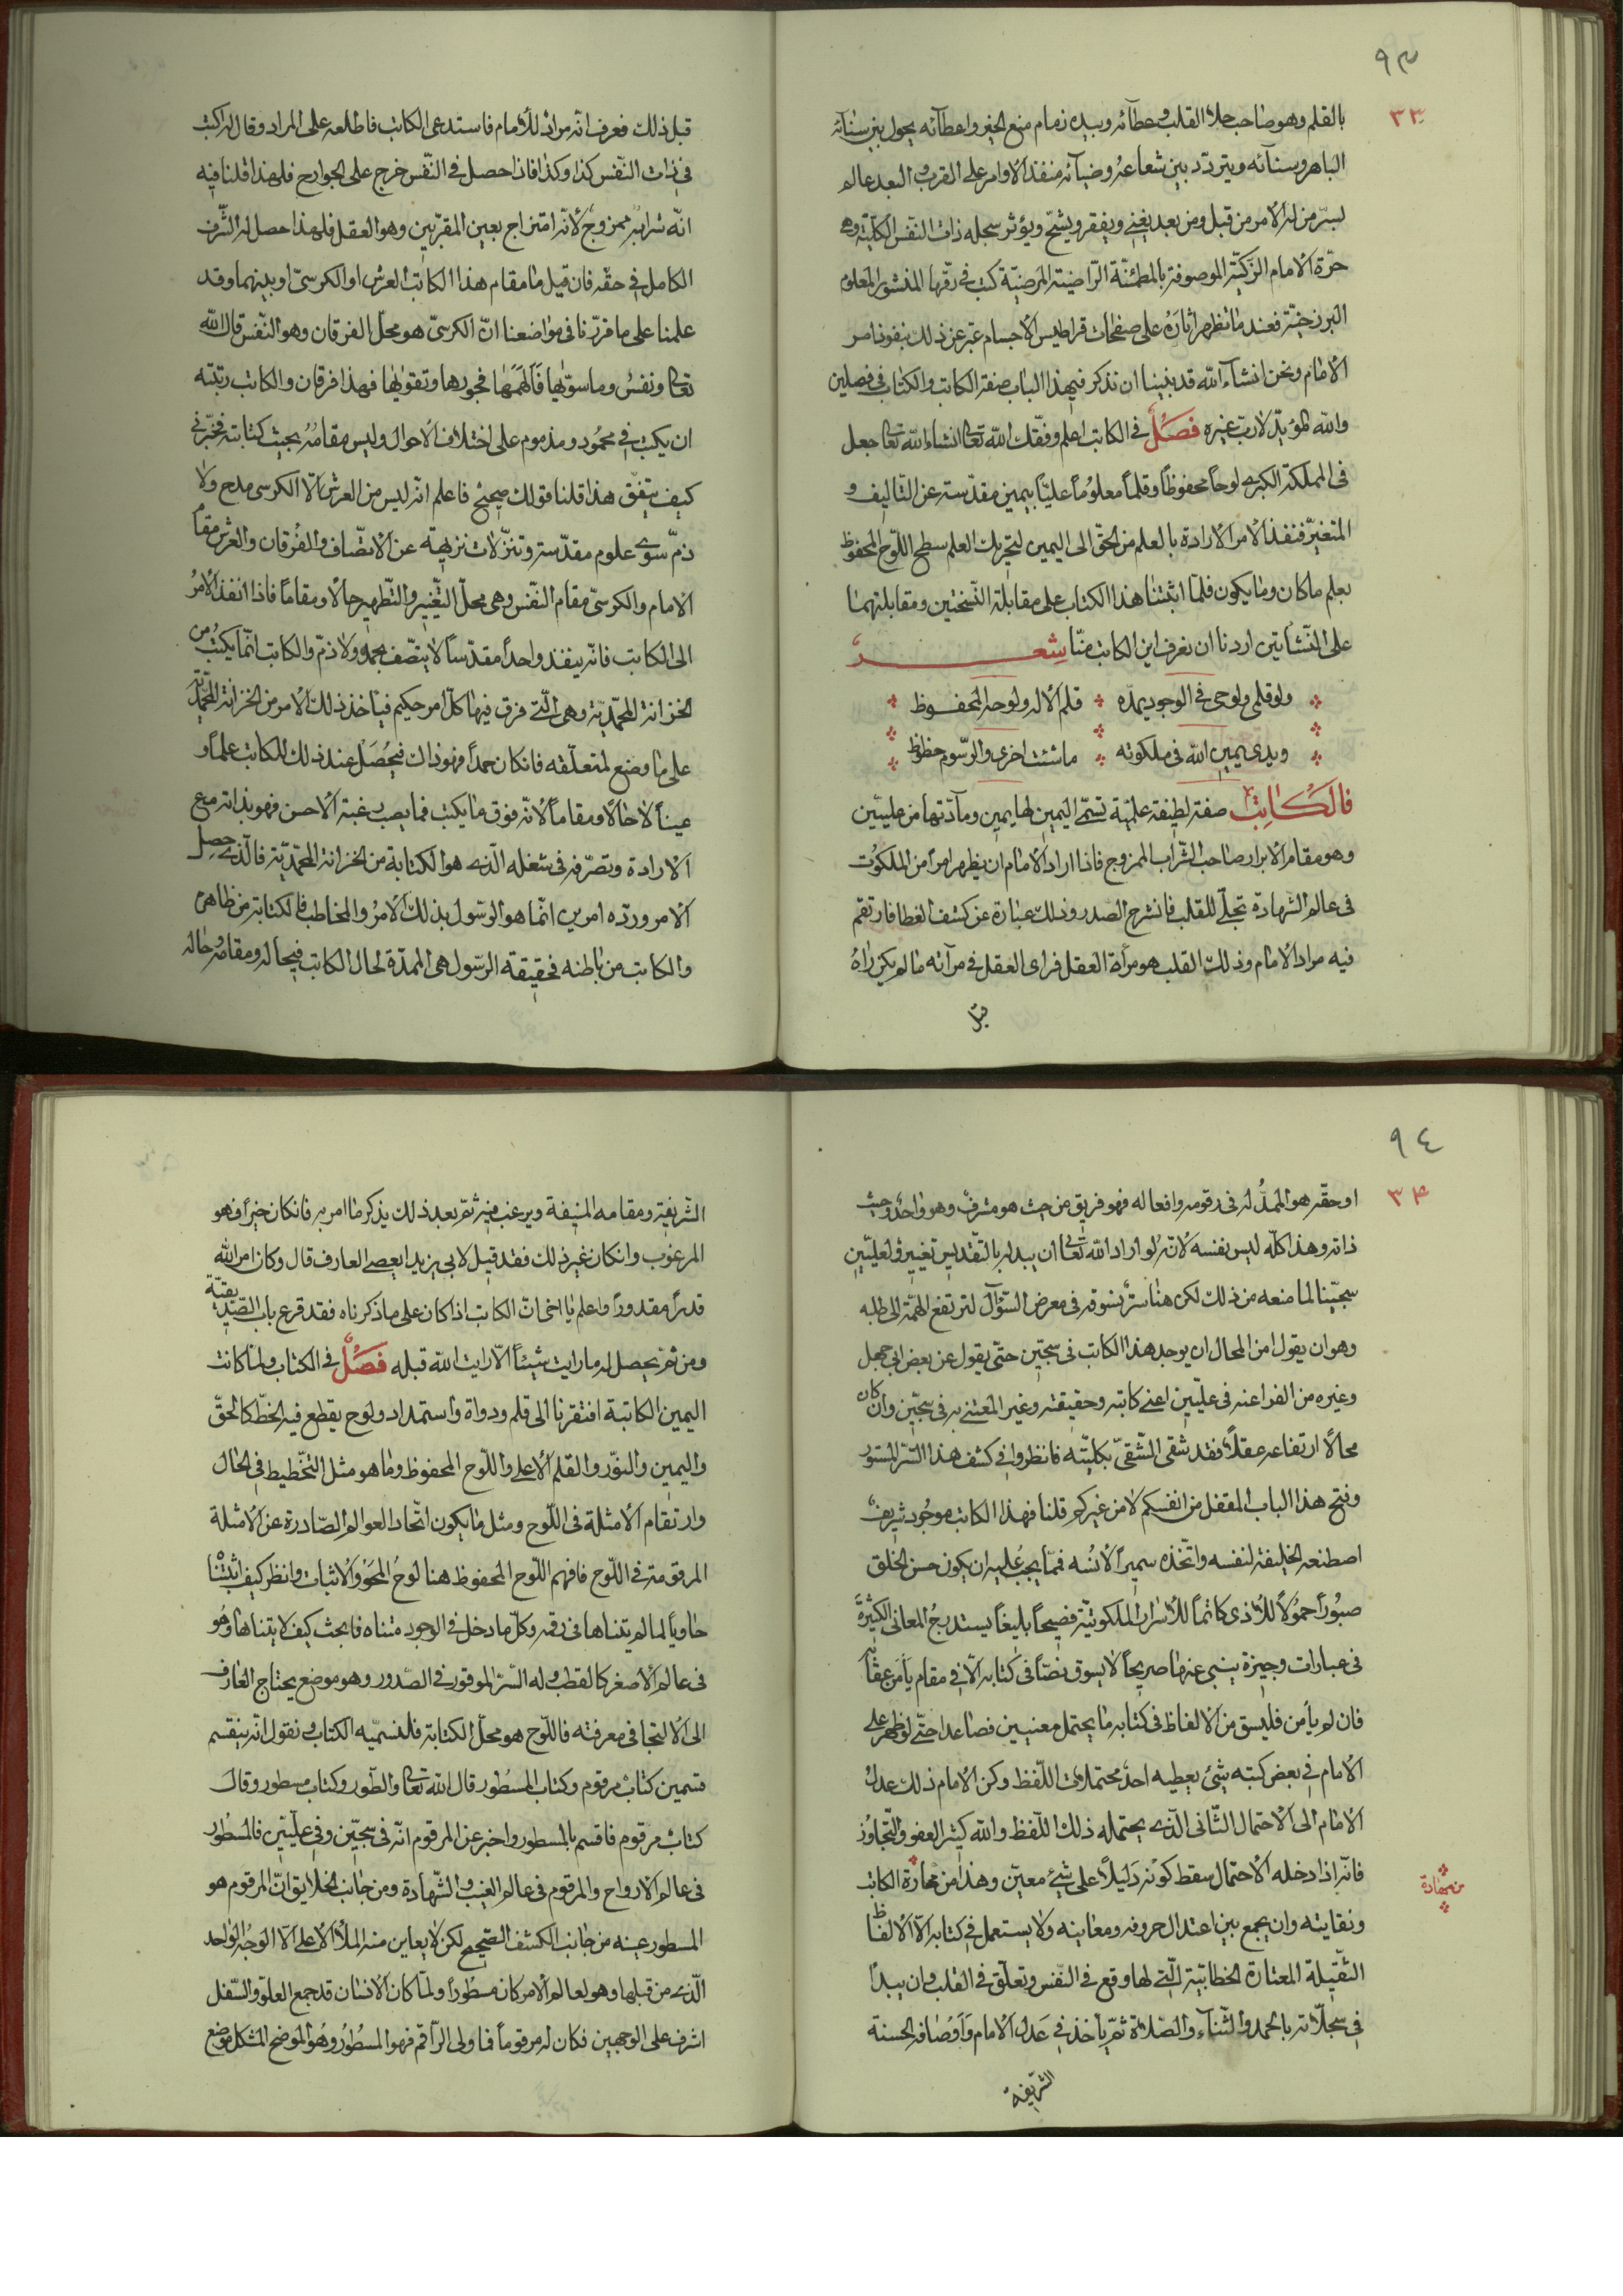 ٩٣
٣٣
بالقلم وهو صاحب جلاء القلب وعطآئه وبيده زمام منع الخير واعطآئه يجول بين سنآئه
الباهر وسنآئه ويتردّد بين شعاعه وضيآئه منفذ الاوامر على القرب والبعد عالم
بسرّ من له الامر من قبل ومن بعد يغنى ويفقر ويشحّ ويؤثر سجله ذات النّفس الكلّية وهى
حرّة الامام الزّكيّة الموصوفة بالمطمئنّة الرّاضية المرضيّة كتب فى رقّها المنشور المعلوم
البرزخيّة فعند ما تظهر اثاره على صفحات قراطيس الاجسام عبّر عن ذلك بنفوذ امر
الامام ونحن انشآء الله قد بنينا ان نذكر فيهذا الباب صفة الكاتب والكتاب فى فصلين
والله المؤيّد لا ربّ غيره فصل فى الكاتب اعلم وفقّك الله تعالى انشاء الله تعالى جعل
فى المملكة الكبرى لوحاً محفوظاً وقلماً معلوماً عليّاً بيمين مقدّسة عن التاليف و
المتغيّر فنفذ الامر الارادة بالعلم من الحقّ الى اليمين لتحريك العلم سطح اللّوح المحفوظ
بعلم ما كان وما يكون فلمّا اثبتنا هذا الكتاب على مقابلة النّسختين ومقابلتهما
على النّشأتين اردنا ان نعرف اين الكاتب منّا شعر
ولو قلمى ولوحى فى الوجود يمدّه قلم الاله ولوحه المحفوظ
ويدى يمين الله فى ملكوته ما شئت اجرى والرّسوم حظوظ
فالكاتب صفة لطيفة علميّة تسمّى اليمين لها يمين ومآدّتها من عليّين
وهو مقام الابرار صاحب الشّراب الممزوج فاذا اراد الامام ان يظهر امراً من الملكوت
فى عالم الشهادة تجلّى للقلب فانشرح الصدر وذلك عبارة عن كشف الغطا فارتقم
فيه مراد الامام وذلك القلب هو مرآة العقل فراى العقل فى مرآته ما لم يكن راه
قبل
قبل ذلك فعرف انّه مراد للأمام فاستدعى الكاتب فاطلعه على المراد وقال له اكتب
فى ذات النّفس كذا وكذا فاذا حصل فى النّفس خرج على الجوارح فلهذا قلنا فيه
انّه شرابه ممزوج لأنّه امتزاج بعين المقرّبين وهو العقل فلهذا حصل له الشّرف
الكامل فى حقّه فان قيل ما مقام هذا الكاتب العرش او الكرسىّ او بينهما وقد
علمنا على ما قرّرنا فى مواضعنا انّ الكرسىّ هو محلّ الفرقان وهو النّفس قال الله
تعالى ونفس وما سوّيها فألهمها فجورها وتقويها فهذا فرقان والكاتب رتبته
ان يكتب فى محمود ومذموم على اختلاف الاحوال وليس مقامه بحيث كتابته فخبّرنى
كيف يتفق هذا قلنا قولك صحيح فاعلم انّه ليس من العرش الّا الكرسى مدح ولا
ذمّ سوى علوم مقدّسة وتنزّلات نزيهة عن الاتّصاف والفرقان والعرش مقام
الامام والكرسىّ مقام النّفس وهى محلّ التّغيير والتّطهير حالاً ومقاماً فاذا انفذ الامر
الى الكاتب فانّه ينفذ واحداً مقدّساً لا يتّصف بحمد ولا ذمّ والكاتب انّما يكتب من
الخزانة المحمّديّة وهى الّتى فرق فيها كلّ امر حكيم فيأخذ ذلك الامر من الخزانة المحمّديّة
على ما وضع لمتعلّقه فان كان حمداً فهو ذات فيحصل عند ذلك للكاتب علماً و
عيناً لا حالاً ومقاماً لأنّه فوق ما يكتب فما يصب رغبة الاحسن فهو بذاته مع
الارادة وتصرّفه فى شغله الّذى هو الكتابة من الخزانة المحمّديّة فالّذى حصل
الامر ورده امرين انّما هو الرسول بذلك الامر والمخاطب فالكتابة من ظاهره
والكاتب من باطنه فحقيقة الرّسول هى الممدّة لحال الكاتب فيحاله ومقامه وحاله
٩٤
٣٤
او حقّه هو الممدّ له فى رقومه وافعاله فهو فريق من حيث هو مشرف وهو واحد وحيث
ذاته وهذا كلّه ليس نفسه لأنّه لو اراد الله تعالى ان يبدله بالتقديس تغيير والعليّين
سجّيناً لما منعه من ذلك لكن هنا سرّ نسوقه فى معرض السّؤال لترتفع الهمّة الى طلبه
وهو ان يقول من المحال ان يوجد هذا الكاتب فى سجّين حتّى يقول عن بعض ابى جهل
وغيره من الفراعنه فى عليّين اعنى كاتبه وحقيقته وغير المعتنى به فى سجّين وان كان
محالاً ارتفاعه عقلاً فقد شقى الشّقىّ بكليّته فانظروا فى كشف هذا السّرّ المستور
وفتح هذا الباب المقفل من انفسكم لا من غيركم قلنا فهذا الكاتب موجود شريف
اصطنعه الخليفة لنفسه واتّخذه سميراً لأنسه فممّا يجب عليه ان يكون حسن الخلق
صبوراً حمولاً للأذى كاتماً للأسرار الملكوتيّة فصيحاً بليغاً يستدرج المعانى الكثيرة
فى عبارات وجيزة ينبى عنها صريحاً لا يسوق نصّاً فى كتابه الّا فى مقام يأمن عقابه
فان لم يأمن فليسق من الالفاظ فى كتابه ما يحتمل معنيين فصاعدا حتّى لو ظهر على
الامام فى بعض كتبه شىء يعطيه احد محتملات اللّفظ وكن الامام ذلك عدل
الامام الى الاحتمال الثّانى الّذى يحتمله ذلك اللّفظ والله كثير العفو والتّجاوز
فانّه اذا دخله الاحتمال سقط كونه دليلاً على شىء معيّن وهذا من مجازة الكاتب
من مهارة
ونقايته وان يجمع بين اعتدال حروفه ومعانيه ولا يستعمل فى كتابه الّا الالفاظ
الثّقيلة المعتارة الخطابيّة الّتى لها وقع فى النّفس وتعلّق فى القلب وان يبدأ
فى سجلّاته بالحمد والثّناء والصّلاة ثمّ يأخذ فى عدل الامام واوصافه الحسنة
الشريفة
الشّريفة ومقامه المنيفة ويرغب فيه ثمّ بعد ذلك يذكر ما امر به فان كان خيراً فهو
المرغوب وان كان غير ذلك فقد قيل لابى يزيد ايعصى العارف قال وكان امر الله
قدراً مقدوراً واعلم يا اخى انّ الكاتب اذا كان على ما ذكرناه فقد قرع باب الصّدّيقيّة
ومن ثمّ يحصل له ما رايت شيئاً الّا رايت الله قبله فصل فى الكتاب ولمّا كانت
اليمين الكاتبة افتقرنا الى قلم ودواة واستمداد ولوح يقطع فيه الخطّ كالحقّ
واليمين والنّور والقلم الاعلى واللّوح المحفوظ وما هو مثل التّخطيط فى الحال
وارتقام الامثلة فى اللّوح ومثل ما يكون اتّحاد العوالم الصّادرة عن الامثلة
المرقومة فى اللّوح فافهم اللّوح المحفوظ هنا لوح المحو والاثبات وانظر كيف اثبتنا
حاوياً لما لم يتناها فى رقمه وكلّ ما دخل فى الوجود متناه فابحث كيف لا يتناها وهو
فى عالم الاصغر كالقطب وله السّرّ الموقور فى الصّدور وهو موضع يحتاج العارف
الى الالتجا فى معرفته فاللّوح هو محلّ الكتابة فلنسمّيه الكتاب ونقول انّه ينقسم
قسمين كتاب مرقوم وكتاب المسطور قال الله تعالى والطّور وكتاب مسطور وقال
كتاب مرقوم فاقسم بالمسطور واخبر عن المرقوم انّه فى سجّين وفى عليّين فالمسطور
فى عالم الارواح والمرقوم فى عالم الغيب والشّهادة ومن جانب الخلايق انّ المرقوم هو
المسطور عينه من جانب الكشف الصّحيح لكن لا يعاين منه الملأ الاعلى الّا الوجه الواحد
الّذى من قبلها وهو لعالم الامر كان مسطوراً ولمّا كان الانسان قد جمع العلو والسّفل
اشرف على الوجهين فكان له مرقوماً فما ولى الرّاقم فهو المسطور وهو الموضح المشكل موضع